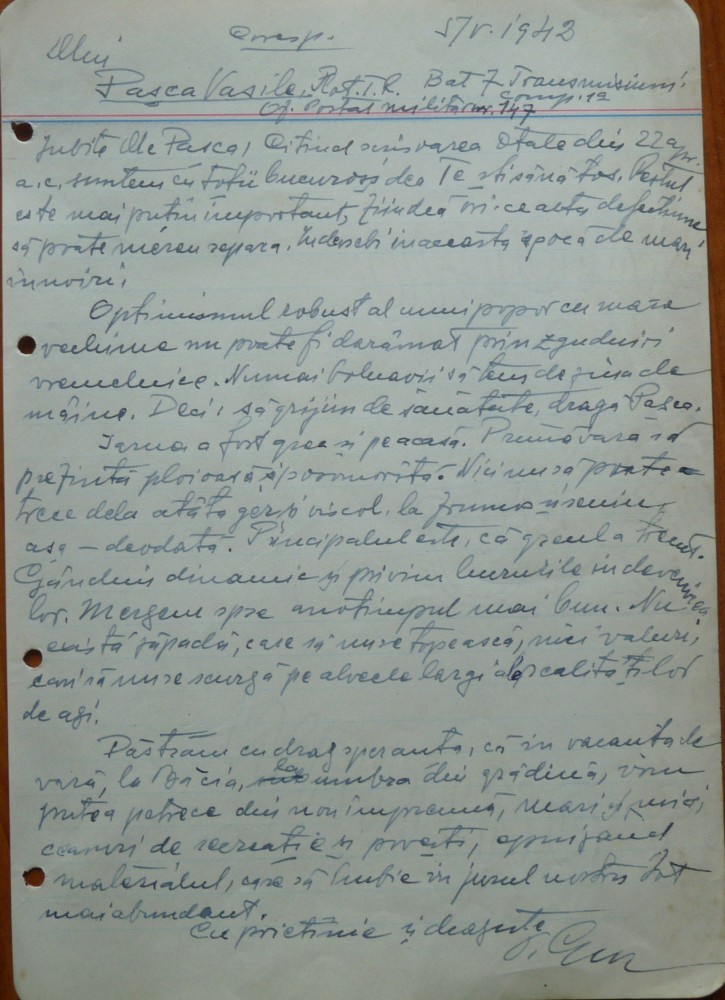 Coresp. 5/V.1942
Dlui
Pasca Vasile, Plot. T.R. Bat 7 Transmisiuni.
Comp. 12
Of. Postal militar nr. 147
Iubite Dle Pasca, Citind scrisoarea Dtale din 22 apr.
a.c. suntem cu totii bucurosi de a Te sti sănătos. Restul
este mai putin important, fiindcă ori-ce alta defectiune
să poate mereu repara. Indeosebi in aceasta epocă de mari
innoiri.
Optimismul robust al unui popor cu mare
vechime nu poate fi darâmat prin zguduiri
vremelnice. Numai bolnavii să tem de ziua de
mâine. Deci, să grijim de sănătate, dragă Pasca.
Iarna a fost grea si pe acasă. Primăvară să
prezintă ploioasă si posomorită. Nici nu să poate
trece dela atâta ger si viscol, la frumos si senin,
asa – deodată. Principalul este, că greul a trecut.
Gândim dinamic si privim lucrurile in devenirea
lor. Mergem spre anotimpul mai bun. Nu
există zăpadă, care să nu se topească, nici valuri,
cari să nu se scurgă pe alveele largi ale realitătilor
de azi.
Păstrăm cu drag speranta, că in vacanta de
vară, la Dăcia, la umbra din grădină, vom
putea petrece din nou impreună, mari si mici,
ceasuri de recreatie si povesti, epuizand
materialul, care să imbie in jurul nostru tot
mai abundant.
Cu prietinie si dragoste